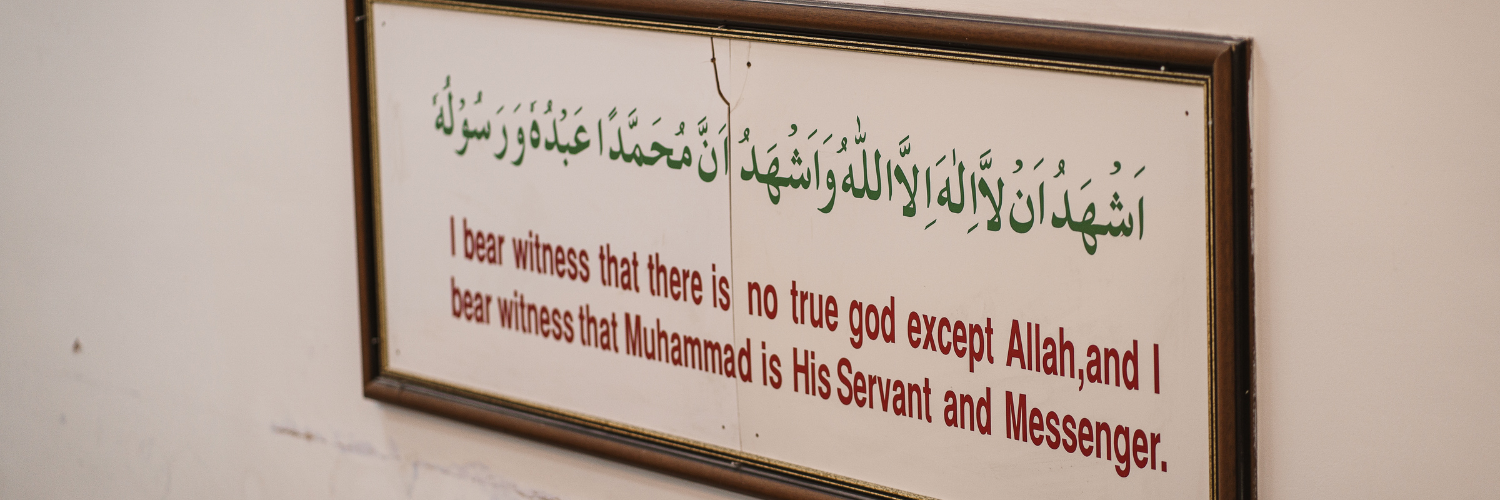 اَشْهَدُ اَنْ لَّاۤ اِلٰهَ اِلَّا اللّٰهُ وَاَشْهَدُ اَنَّ مُحَمَّدًا عَبْدُهٗ وَرَسُوْلُهٗ
I bear witness that there is no true god except Allah,and I
bear witness that Muhammad is His Servant and Messenger.